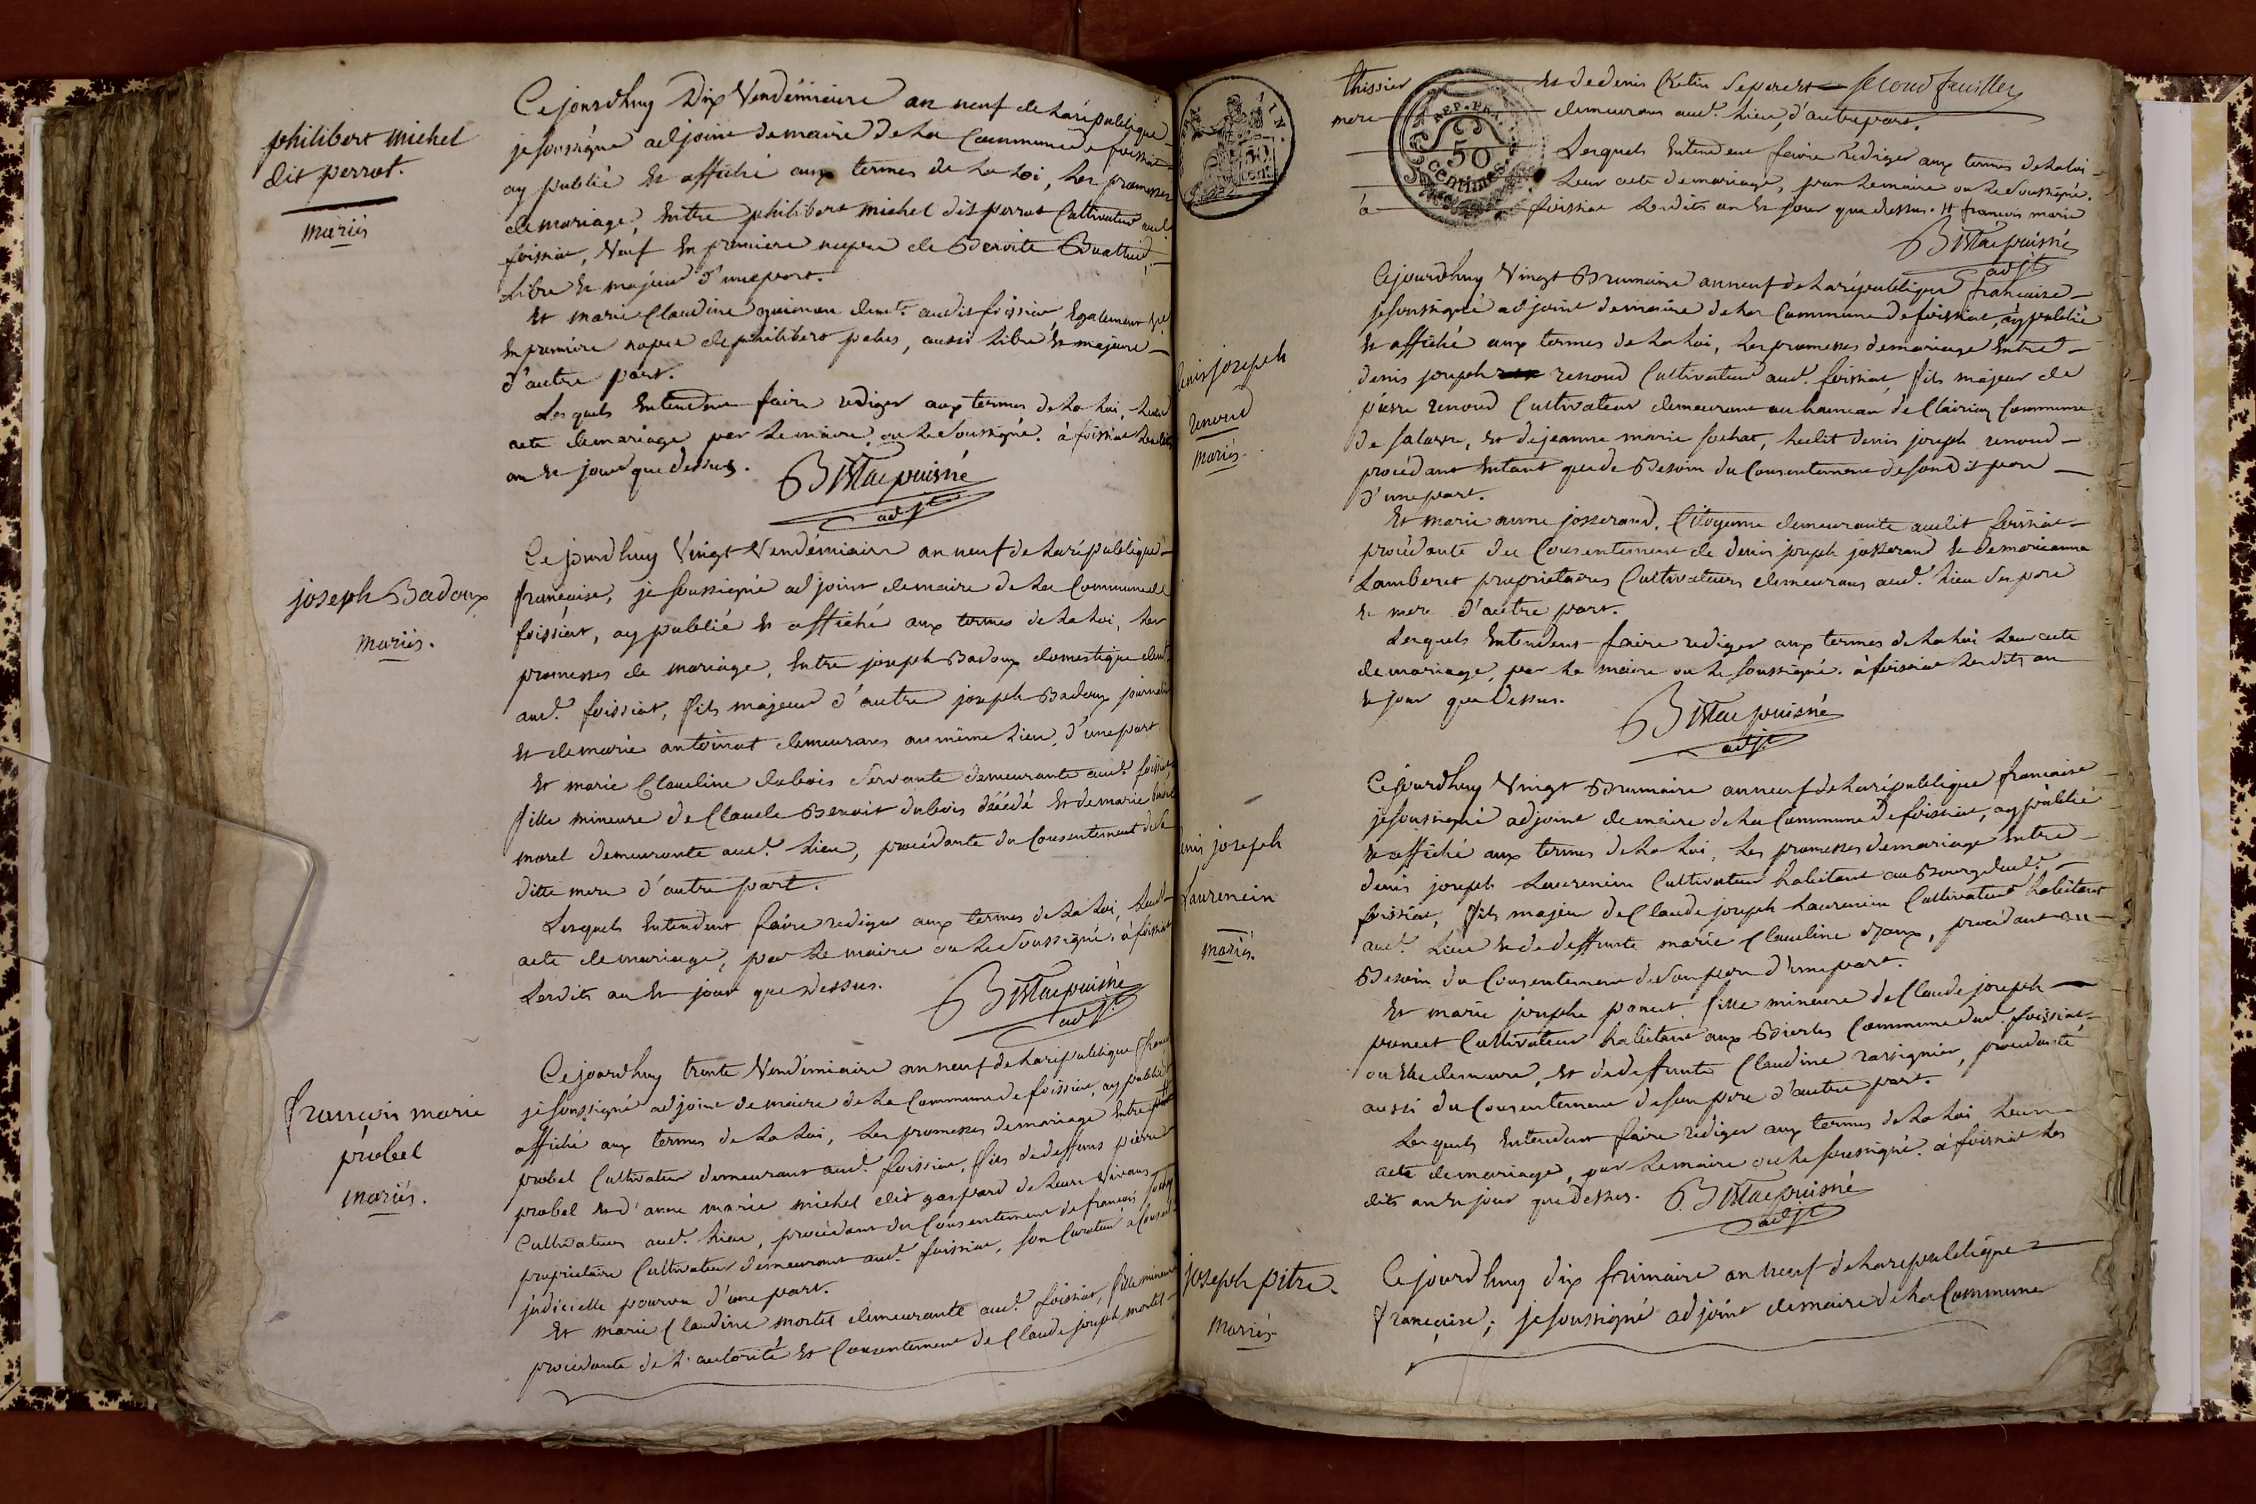 philibert michel
dit perrot.
mariés
Cejourdhuy Dix Vendémiaire an neuf de la république
je soussigné adjoint demaire de la Commune de foissiat
ay publié Et affiché aux termes de la Loi, les promesses
de mariage, Entre philibert michel dit perrot Cultivateur aud.
foissiat, Veuf En premiere nopce de Benoite Buathier,
Libre Et majeur d'unepart.
Et marie Claudine demt. audit foissiat Egalement
En premiere nopce de philibert, aussi Libre Et majeure
d'autre part.
Lesquels Entendent faire rediger aux termes de la Loi, Leur
acte demariage par Lemaire ou Le Soussigné. à foissiat Lesdits
an Et jour que dessus.
B Maupuisné
adjt
joseph Badoux
mariés.
Cejourdhuy Vingt Vendémiaire an neuf de la république
française, je soussigné adjoint demaire de la Commune de
foissiat, ay publié Et affiché aux termes de la Loi, Les
promesses de mariage, Entre joseph Badoux domestique demt.
aud. foissiat, fils majeur d'autre joseph Badoux journalier
Et de marie antoinat demeurans aumême Lieu, d'une part
Et marie Claudine dubois Servante demeurante aud. foissiat
fille mineure de Claude Benoit dubois décédé Et de marie
morel demeurante aud. Lieu, procédante du Consentement de la
ditte mere d'autre part.
Lesquels Entendent faire rediger aux termes de la Loi, Leur
acte de mariage, par Le maire ou Le Soussigné. à foissiat
Lesdits an Et jour que dessus.
B Maupuisné
adjt.
françois marie
probel
mariés.
Cejourdhuy trente Vendémiaire an neuf de la republique
jesoussigné adjoint demaire de la Commune de foissiat, ay publié
affiché aux termes de la Loi, Les promesses demariage Entre
probel Cultivateur demeurant aud. foissiat, fils de deffunts pierre
probel Et d'anne marie michel dit gaspard de Leurs Vivans
Cultivateurs aud. Lieu, procédant du Consentement de françois
propriétaire Cultivateur demeurant aud. foissiat, son Curateur
judicielle pourvu d'une part.
Et marie Claudine mortel demeurante aud. foissiat, fille mineure
procédante de L'autorité Et Consentement de Claude joseph mortel
thissier Et de denis Chetin Separet Second feuillet
mere demeurans aud. Lieu, d'autrepart.
Lesquels Entendent faire rediger aux termes de la Loi
Leur acte demariage, par Lemaire ou Le Soussigné.
à foissiat Lesdits an Et jour que dessus. # françois marie
B Maupuisné
adjt
REP. FRA.
50
centimes
denis joseph
renoud
mariés.
Cejourdhuy Vingt Brumaire an neuf de la république française
jesoussigné adjoint demaire de la Commune de foissiat, ay publié
Et affiché aux termes de la Loi, Les promesses demariage Entre
denis joseph renoud Cultivateur aud. foissiat, fils majeur de
pierre renoud Cultivateur demeurant au hameau de Commune
de Salavre, Et de jeanne marie sochat, Ledit denis joseph renoud
procédant Entant que de Besoin du Consentement deson dit pere
d'une part.
Et marie anne josserand, Citoyenne demeurante audit foissiat
procédante du Consentement de denis joseph josserand Et de marieanne
Lamberet proprietaires Cultivateurs demeurans aud. Lieu Ses pere
Et mere d'autre part.
Lesquels Entendent faire rediger aux termes de la Loi Leur acte
demariage, par Le maire ou Le soussigné. à foissiat Lesdits an
Et jour que Dessus.
B Maupuisné
adjt
denis joseph
Laurencin
mariés.
Cejourdhuy Vingt Brumaire an neuf de la république française
jesoussigné adjoint demaire de la Commune de foissiat, ay publié
Et affiché aux termes de la Loi, Les promesses demariage Entre
denis joseph Laurencin Cultivateur habitant au Bourg dud.
foissiat, fils majeur de Claude joseph Laurencin Cultivateur habitant
aud. Lieu Et de deffunte marie Claudine, procédant au
Besoin du Consentement de Son pere d'une part.
Et marie josephe poncet fille mineure de Claude joseph
poncet Cultivateur habitant aux Biolles Commune dud. foissiat
ou Elle demeure, Et de deffunte Claudine rassignier, procédante
aussi du Consentement deson pere d'autre part.
Lesquels Entendent faire rediger aux termes de la Loi Leur
acte demariage, par Lemaire ou Le soussigné. à foissiat Les
dits an Et jour que dessus.
B Maupuisné
adjt
joseph pitre
mariés
Cejourdhuy dix frimaire an neuf de la republique
française, jesoussigné adjoint demaire de la Commune